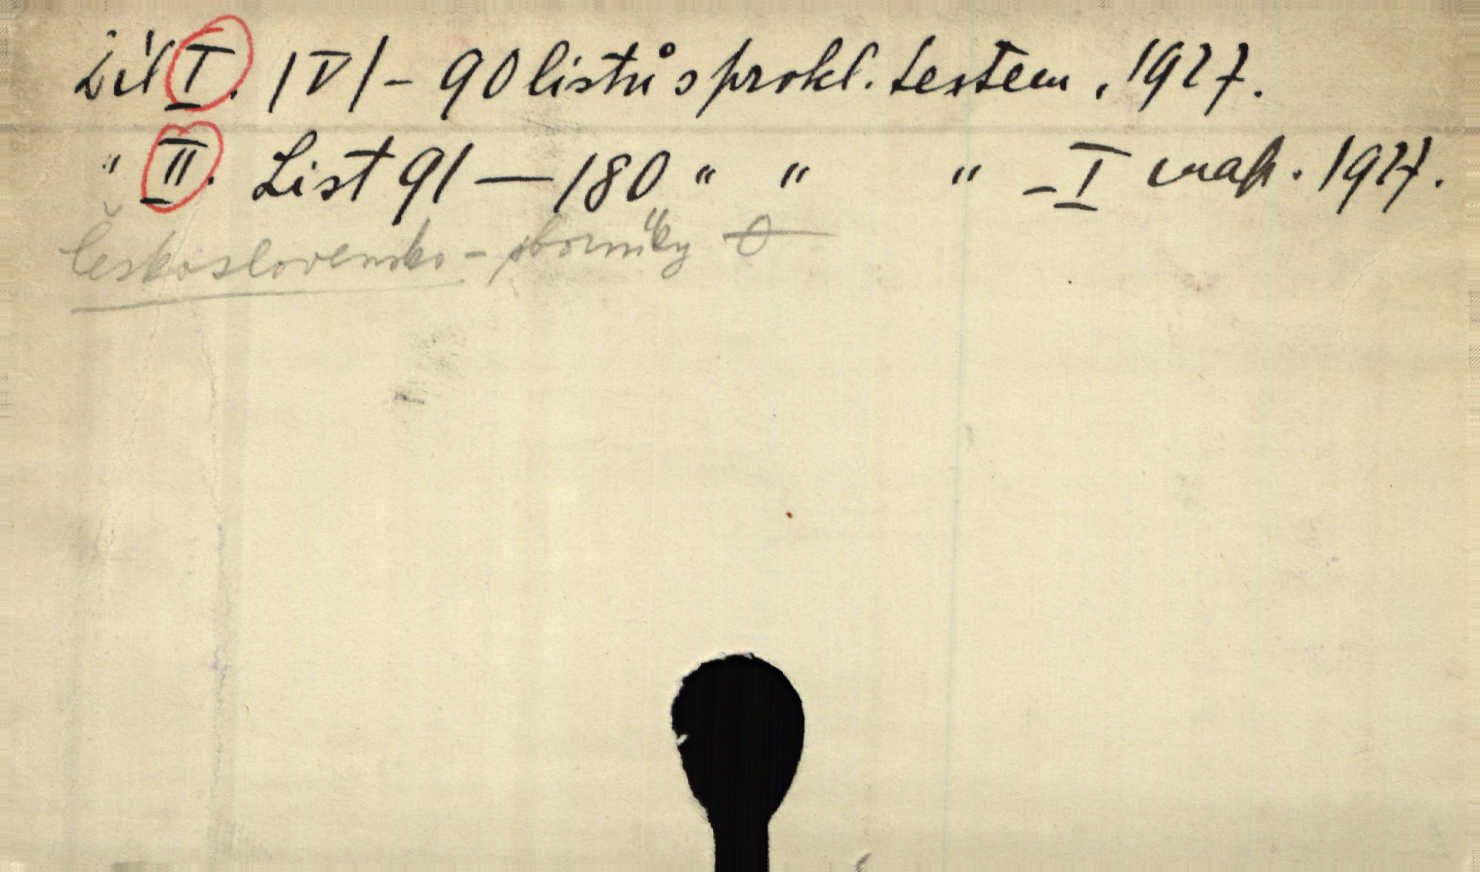 Díl I. |V| - 90 listů s prokl. textem, 1927.
" II. List 91 — 180 " " " - I map. 1927.
Československo - sborníky